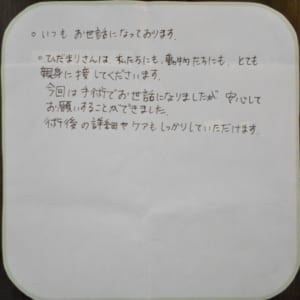 ○ いつも お世話になっております.
○ ひだまりさんは、私たちにも、動物たちにも、とても
親身に接してくださいます.
今回は手術でお世話になりましたが 安心して
お願いすることができました.
術後の詳細やケアもしっかりしていただけます.